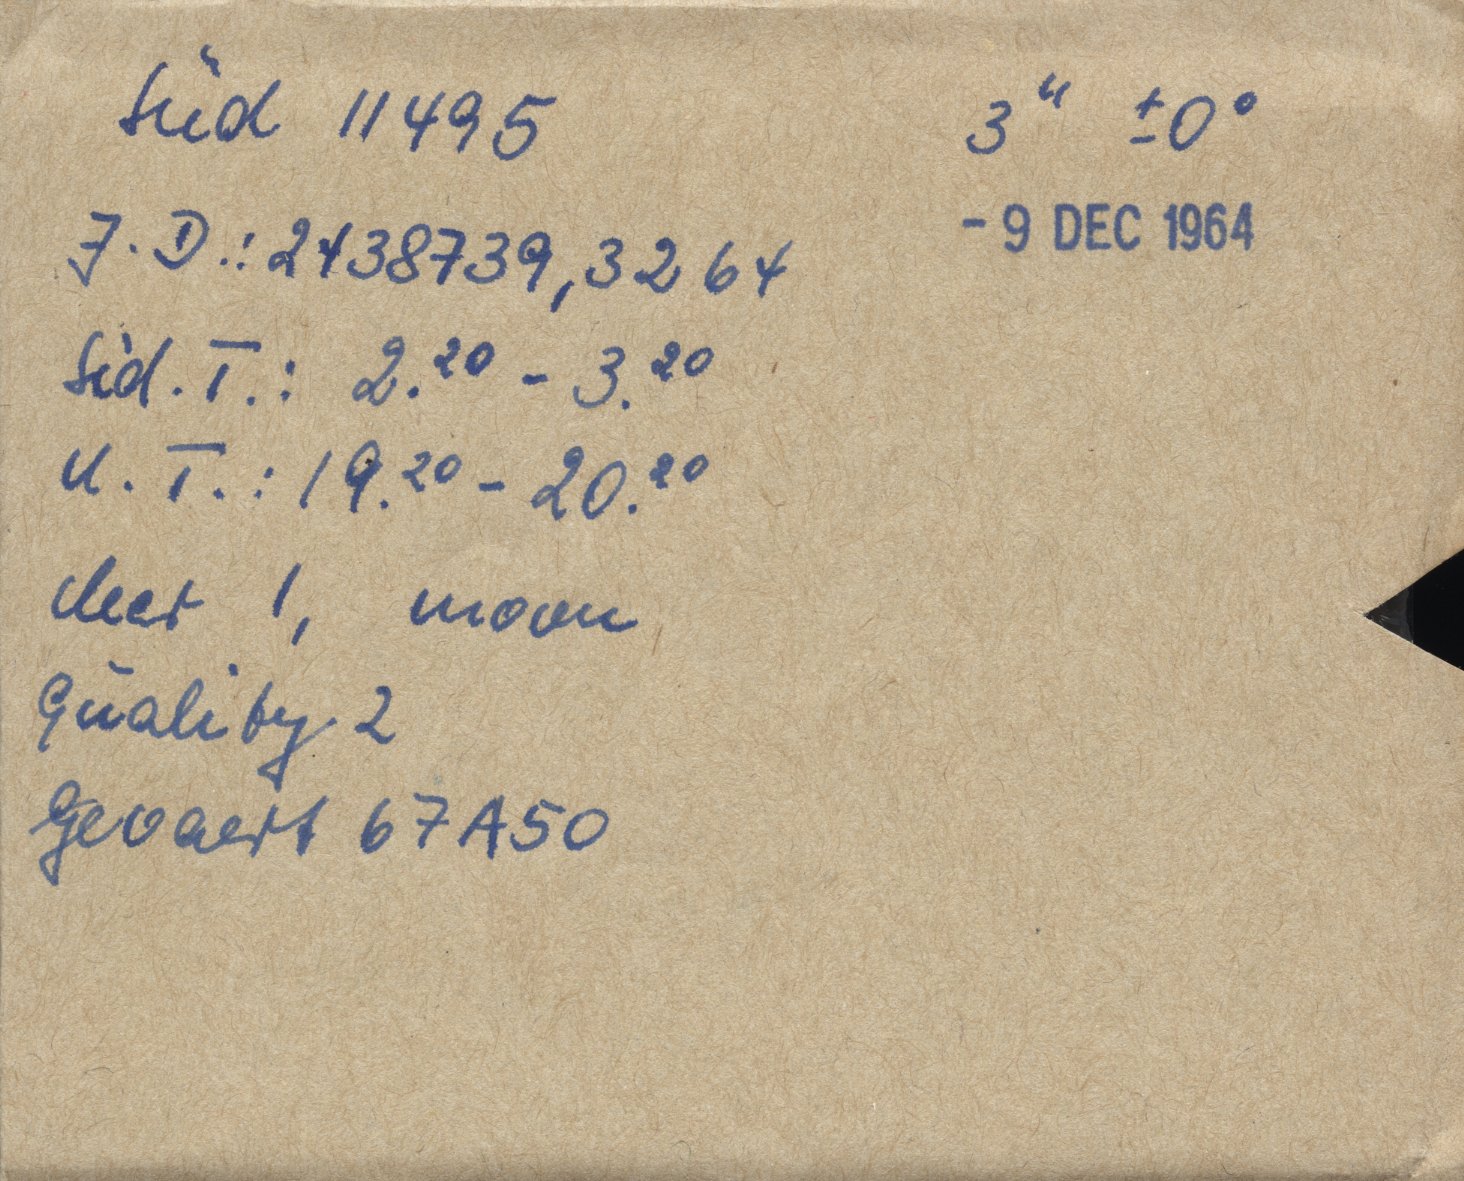 Süd 11495 3ʰ ±0°
- 9 DEC 1964
J.D.: 2438739,3264
Sid.T.: 2.²⁰ - 3.²⁰
U.T.: 19.²⁰ - 20.²⁰
clear 1, moon
Quality 2
Gevaert 67A50